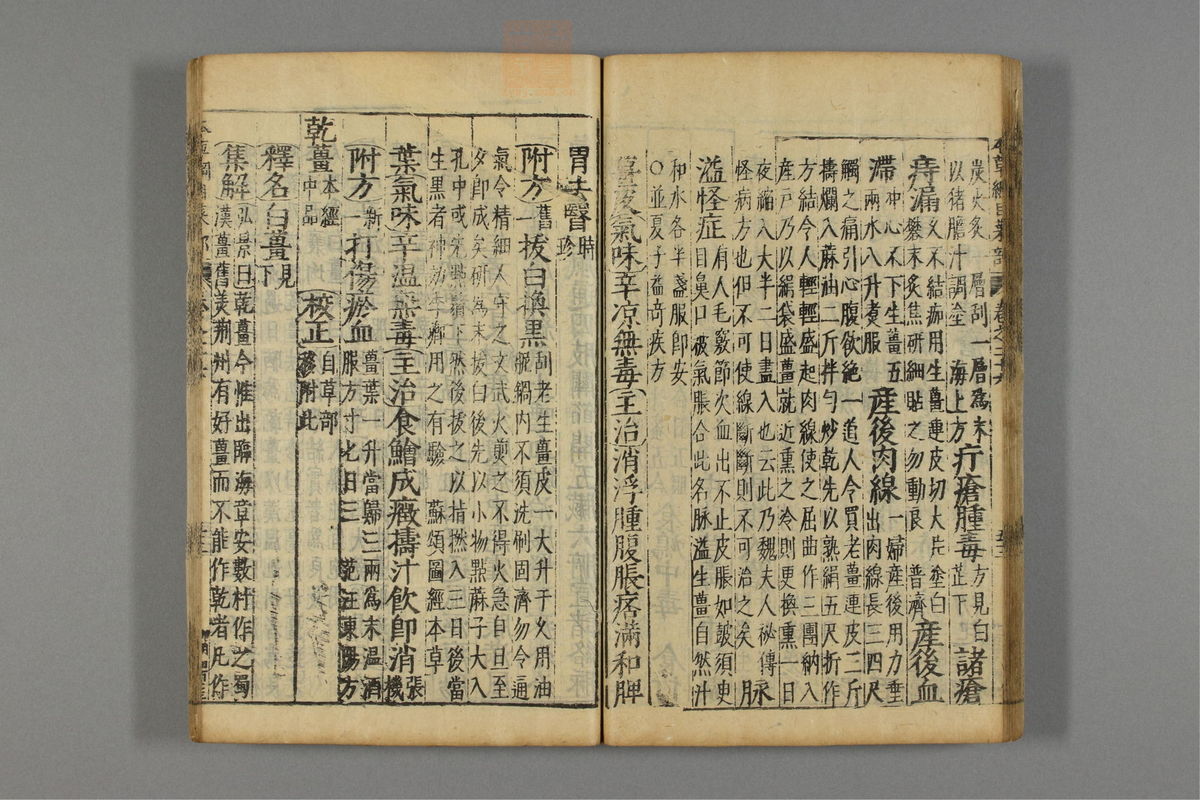 炭火炙一層刮一層為末
以猪膽汁調塗 海上方 疔瘡腫毒 方見白芷下 諸瘡
痔漏 久不結痂用生薑連皮切大片塗白礬末炙焦研細貼之勿動良 普濟 産後血
滯 冲心不下生薑五兩水八升煑服 産後肉線 一婦産後用力垂出肉線長三四尺
觸之痛引心腹欲絶一道人令買老薑連皮三斤
擣爛入蔴油二斤拌勻炒乾先以熟絹五尺折作
方結令人輕輕盛起肉線使之屈曲作三團納入
産户乃以絹袋盛薑就近熏之冷則更換熏一日
夜縮入大半二日盡入也云此乃魏夫人祕傳
怪病方也但不可使線斷斷則不可治之矣 脉
溢怪症 有人毛竅節次血出不止皮脹如皷須臾目鼻口被氣脹合此名脉溢生薑自然汁
和水各半盞服即安
○並夏子益奇疾方
薑皮 氣味 辛凉無毒 主治 消浮腫腹脹痞滿和脾
胃去瞖 時珍
附方 舊一 拔白換黑 刮老生薑皮一大升于久用油膩鍋内不須洗刷固濟勿令通
氣令精細人守之文武火煎之不得火急自旦至
夕即成矣研為末拔白後先以小物點蔴子大入
孔中或先點鬚下然後拔之以指撚入三日後當
生黑者神効李卿用之有驗 蘇頌圖經本草
葉 氣味 辛温無毒 主治 食鱠成癥擣汁飲即消 張機
附方 新一 打傷瘀血 薑葉一升當歸三兩為末温酒服方寸匕日三 范汪東陽方
乾薑 本經中品 校正 自草部移附此
釋名 白薑 見下
集解 弘景曰乾薑今惟出臨海章安數村作之蜀漢薑舊美荆州有好薑而不能作乾者凡作